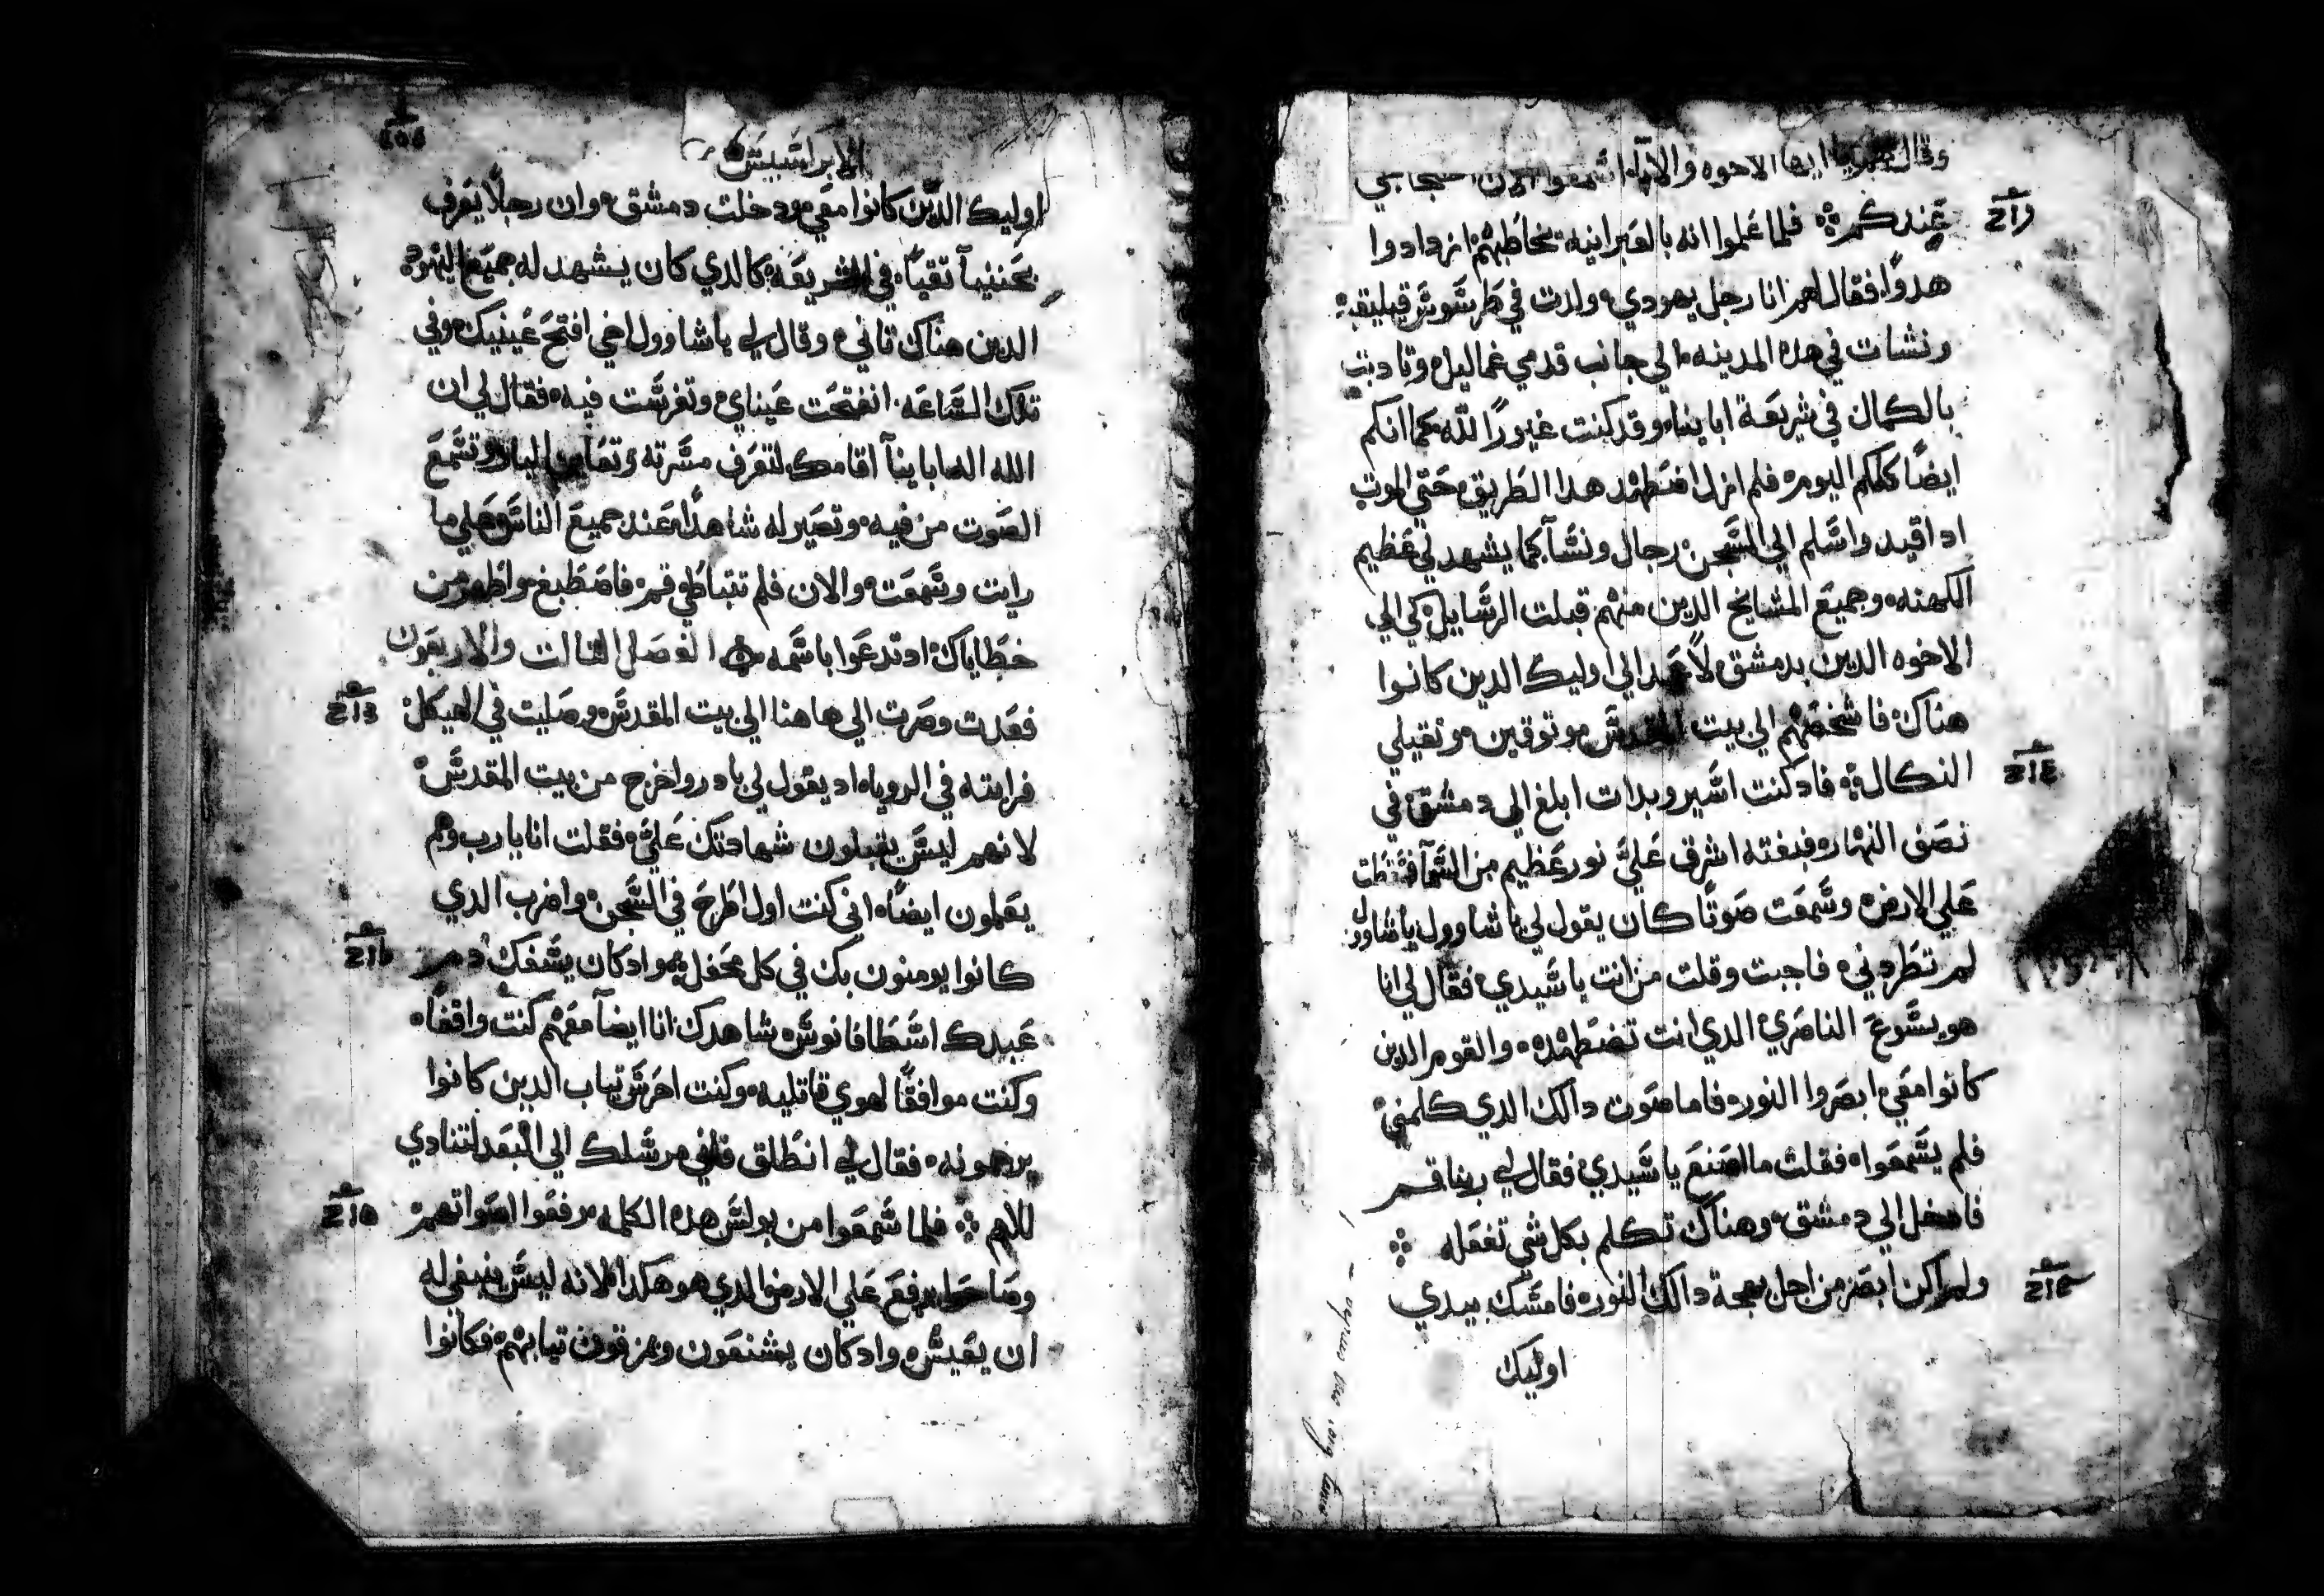 وقال ايها الاخوه والابآ اسمعوا الان
عندكم فلما علموا انه بالعبرانيه يخاطبهم ازدادوا
هدوًا فقال لهم انا رجل يهودي ولدت في طرسوس قيليقيه
ونشات في هده المدينه الي جانب قدمي غماليل وتادبت
بالكمال في شريعة اباينا وقد كنت غيورًا لله كما انكم
ايضًا كلكم اليوم فلم ازل اضطهد هدا الطريق حتي الموت
اد اقيد واسلم الي السجن رجال ونسآ كما يشهد لي عظيم
الكهنه وجميع المشايخ الدين منهم قبلت الرسايل كي الي
الاخوه الدين بدمشق لاعمد الي اوليك الدين كانوا
هناك فاشخصهم الي بيت المقدس موتوقين وتقبلي
النكال فاد كنت اسير وبدات ابلغ الي دمشق في
نصف النهار فبغته اشرق علي نور عظيم من السمآ فسقطت
علي الارض وسمعت صوتًا كان يقول لي يا شاوول يا شاوول
لم تطردني فاجبت وقلت من انت يا سيدي فقال لي انا
هو يسوع الناصري الدي انت تضطهده والقوم الدين
كانوا معي ابصروا النور فاما صوت دالك الدي كلمني
فلم يسمعوا فقلت ما اصنع يا سيدي فقال لي ربنا قم
فادخل الي دمشق وهناك تكلم بكل شي تفعله
ولم اكن ابصر من اجل بهجة دالك النور فامسك بيدي
اوليك
الابراكسيس
اوليك الدين كانوا معي ودخلت دمشق وان رجلًا يعرف
بحننيا تقيًا في الشريعه كالدي كان يشهد له جميع اليهود
الدين هناك تاني وقال لي يا شاوول اخي افتح عينيك وفي
تلك الساعه انفتحت عيناي وتفرست فيه فقال لي ان
الله اله اباينآ اقامك لتعرف مسرته وتعاين البار وتسمع
الصوت من فيه وتصير له شاهدًا عند جميع الناس علي ما
رايت وسمعت والان فلم تتباطي قم فاصطبغ واطهر من
خطاياك اد تدعوا باسمه الفصل التالت والاربعون
فعدت وصرت الي هاهنا الي بيت المقدس وصليت في الهيكل
فرايته في الرويا اد يقول لي بادر واخرج من بيت المقدس
لانهم ليس يقبلون شهادتك علي فقلت انا يا رب وهم
يعلمون ايضًا اني كنت اول اطرح في السجن واضرب الدي
كانوا يومنون بك في كل محفل واد كان يسفك دم
عبدك اسطافانوس شاهدك انا ايضآ معهم كنت واقفًا
وكنت موافقًا لهوي قاتليه وكنت احرس تياب الدين كانوا
يرجمونه فقال لي انطلق فاني مرسلك الي البعد لتنادي
للامم فلما سمعوا من بولس هده الكلمه رفعوا اصواتهم
وصاحوا يرفع علي الارض الدي هو هكدا لانه ليس ينبغي له
ان يعيش واد كان يشنعون ويمزقون تيابهم فكانوا